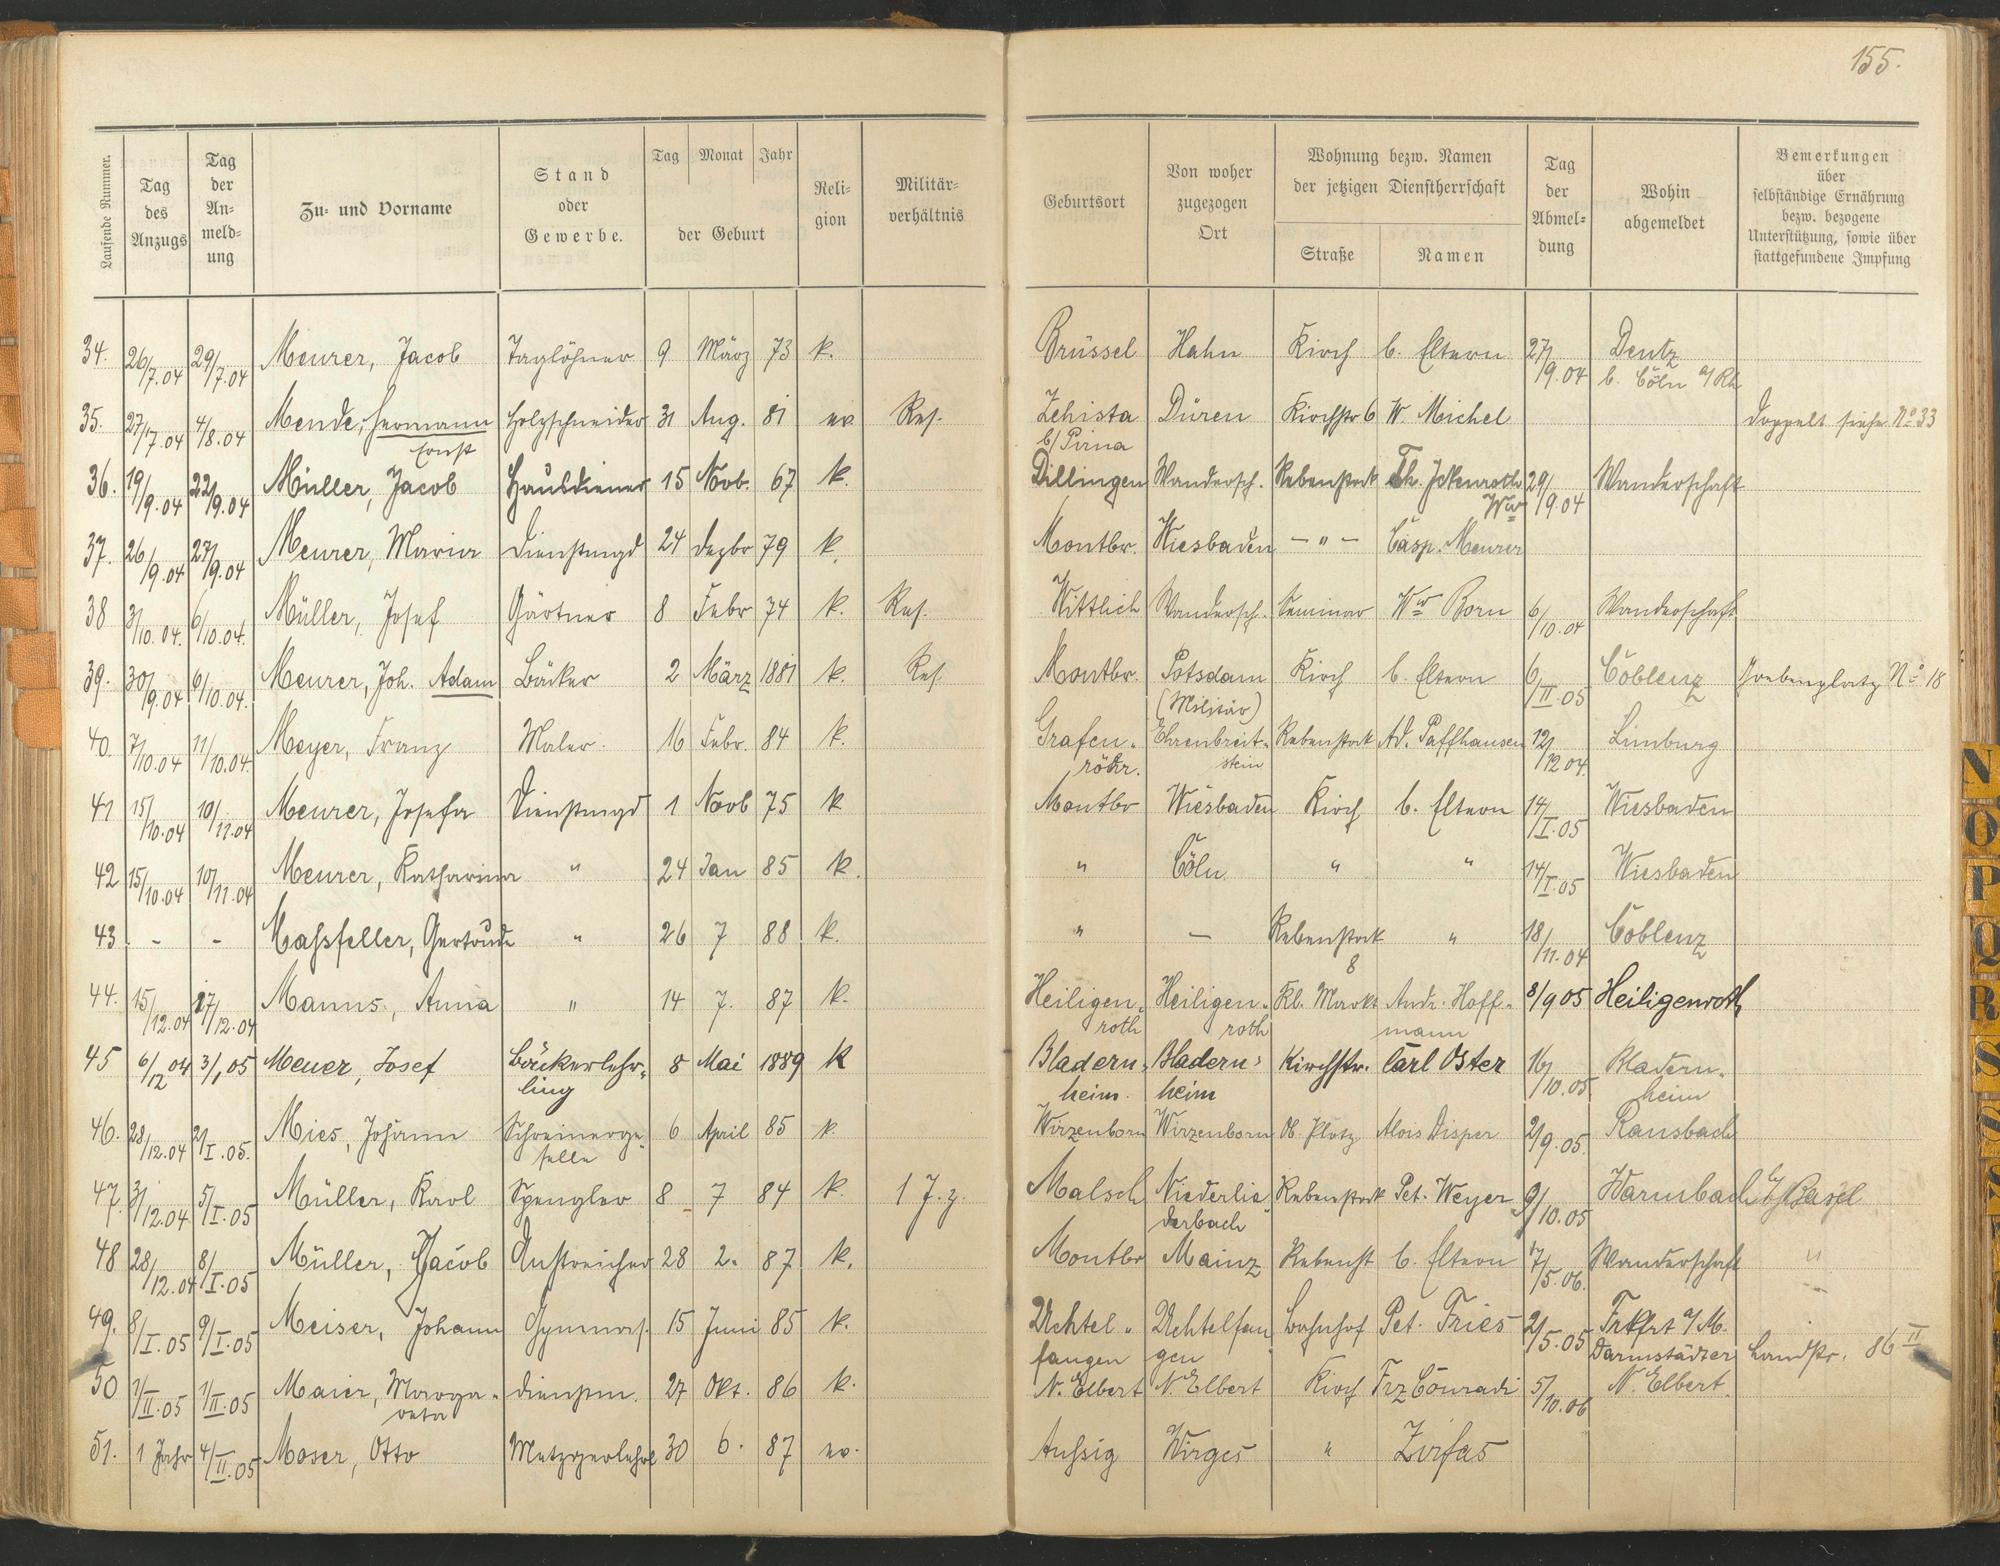 155.
Laufende Nummer.
Tag des Anzugs
Tag der An- meld- ung
Zu- und Vorname
Stand oder Gewerbe.
Tag Monat Jahr
der Geburt
Reli- gion
Militär- verhältnis
Geburtsort
Von woher zugezogen Ort
Wohnung bezw. Namen der jetzigen Dienstherrschaft
Straße Namen
Tag der Abmel- dung
Wohin abgemeldet
Bemerkungen über selbständige Ernährung bezw. bezogene Unterstützung, sowie über stattgefundene Impfung
34. 26/7.04 29/7.04 Meurer, Jacob Taglöhner 9 März 73 k. Brüssel Hahn Kirch b. Eltern 27/9.04 Deutz
b. Cöln a/Rh
35. 27/7.04 4/8.04 Mende, Hermann Holzschneider 31 Aug. 81 ev. Res. Zehista Düren Kirchstr 6 W. Michel Doppelt siehe No 33
Ernst b/Pirna
36. 19/9.04 22/9.04 Müller, Jacob Hausdiener 15 Nov. 67 k. Dillingen Wandersch. Rebenstock Th. Ickenroth 29/9.04 Wanderschaft
Ww
37. 26/9.04 27/9.04 Meurer, Maria Dienstmgd 24 Dezbr 79 k. Montbr. Wiesbaden — " — Casp. Meurer
38 3/10.04. 6/10.04. Müller, Josef Gärtner 8 Febr 74 k. Res. Wittlich Wandersch. Seminar Ww Born 6/10.04 Wanderschaft
39. 30/9.04 6/10.04. Meurer, Joh. Adam Bäcker 2 März 1881 k. Res. Montbr. Potsdam Kirch b. Eltern 6/II.05 Coblenz No 18
(Militär)
40. 7/10.04 11/10.04. Meyer, Franz Maler. 16 Febr. 84 k. Grafen- Ehrenbreit- Rebenstock Ad. Paffhausen 12/12 04. Limburg
stein
41 15/10.04 10/11.04 Meurer, Josefa Dienstmgd 1 Novb 75 k Montbr Wiesbaden Kirch b. Eltern 14/I.05 Wiesbaden
42 15/10.04 10/11.04 Meurer, Katharina " 24 Jan 85 k. " Cöln " " 14/I.05 Wiesbaden
43 - - Maßfeller, Gertrude " 26 7 88 k. " — Rebenstock " 18/11.04 Coblenz
8
44. 15/12.04 17/12.04 Manns, Anna " 14 7. 87 k. Heiligen- Heiligen- Kl. Markt Andr. Hoff- 8/9 05 Heiligenroth
roth roth mann
45 6/12 04 3/1 05 Meuer, Josef Bäckerlehr- 8 Mai 1889 k Bladern- Bladern- Kirchstr. Carl Oster 16/10.05 Bladern-
ling heim. heim heim
46. 28/12.04 2/I.05. Mies, Johann Schreinerge- 6 April 85 k. Wirzenborn Wirzenborn Ob. Plötz Alois Disper 2/9.05. Ransbach
selle
47. 3/12.04 5/I.05 Müller, Karl Spengler 8 7 84 k. 1 J. z. Malsch Niederlie- Rebenstock Pet. Weyer 9/10.05 Warmbach b/Basel
derbach
48 28/12.04 8/I.05 Müller, Jacob Anstreicher 28 2. 87 k. Montbr Mainz Rebenst b. Eltern 17/5.06. Wanderschaft "
49. 8/I.05 9/I.05 Meiser, Johann Gymnas. 15 Juni 85 k. Uchtel- Uchtelfan Bahnhof Pet. Fries 2/5.05 Frkfrt a/M.
fangen gen Darmstädter Landstr. 86 II
50 1/II.05 1/II.05 Maier, Marga- Dienstm. 27 Okt. 86 k. N. Elbert N. Elbert Kirch Frz Conradi 5/10.06 N. Elbert.
reta
51. 1 Jahr 4/II.05 Moser, Otto Metzgerlehrl 30 6. 87 ev. Aussig Wirges " Zirfas
N
O
P
Q
R
S